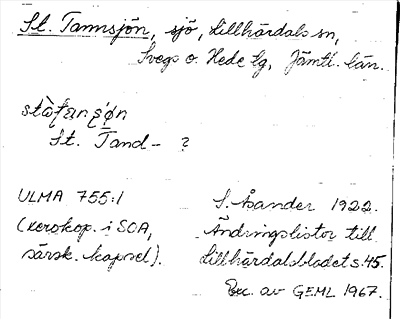 St. Tannsjön, sjö, Lillhärdals sn,
Svegs o. Hede tg, Jämtl. län.
St. Tand- ?
ULMA 755:1 S. Åander 1922.
(xerokop. i SOA, Ändringslistor till
särsk. kapsel). Lillhärdalsbladet s. 45.
Exc. av GEML 1967.